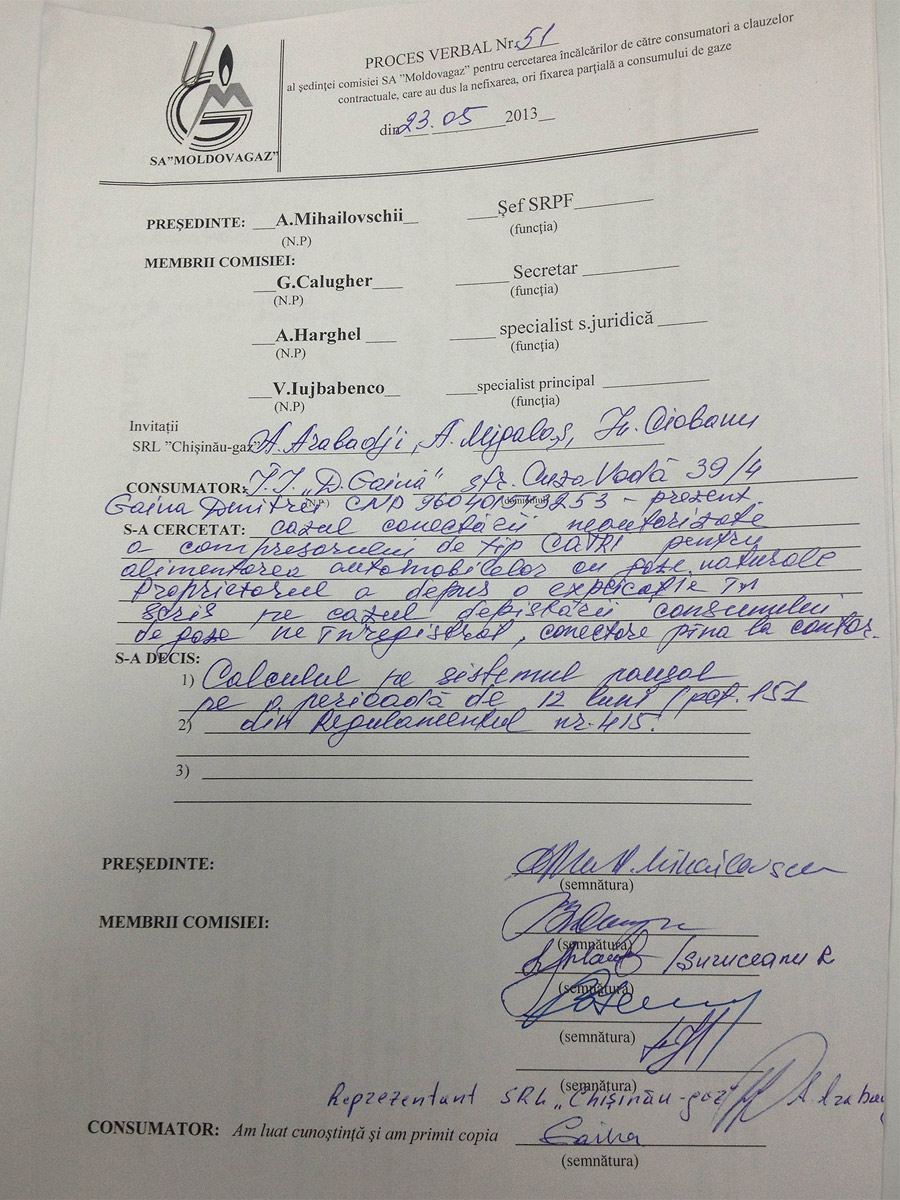 PROCES VERBAL Nr. 51
al ședinței comisiei SA "Moldovagaz" pentru cercetarea încălcărilor de către consumatori a clauzelor
contractuale, care au dus la nefixarea, ori fixarea parțială a consumului de gaze
din 23.05 2013
SA"MOLDOVAGAZ"
PREȘEDINTE: A.Mihailovschii Șef SRPF
(N.P) (funcția)
MEMBRII COMISIEI:
G.Calugher Secretar
(N.P) (funcția)
A.Harghel specialist s.juridică
(N.P) (funcția)
V.Iujbabenco specialist principal
(N.P) (funcția)
Invitații
SRL "Chișinău-gaz" A. Arabadji, A. Migalaș, Iu. Ciobanu
CONSUMATOR: Î.I. „D. Gaina" str. Cuza Vodă 39/4
Gaina Dmitrei CNP - prezent.
S-A CERCETAT: cazul conectării neautorizate
a compresorului de tip pentru
alimentarea automobilelor cu gaze naturale
Proprietorul a depus o explicație în
scris pe cazul depistării consumului
de gaze ne înregistrat, conectare pina la contor.
S-A DECIS:
1) Calculul pe sistemul paușal
pe o perioadă de 12 luni (pct. 151
2) din Regulamentul nr. 415.
3)
PREȘEDINTE: A. Mihailovscii
(semnătura)
MEMBRII COMISIEI:
(semnătura)
/Suruceanu R
(semnătura)
(semnătura)
(semnătura)
Reprezentant SRL „Chișinău-gaz"
CONSUMATOR: Am luat cunoștință și am primit copia Gaina
(semnătura)